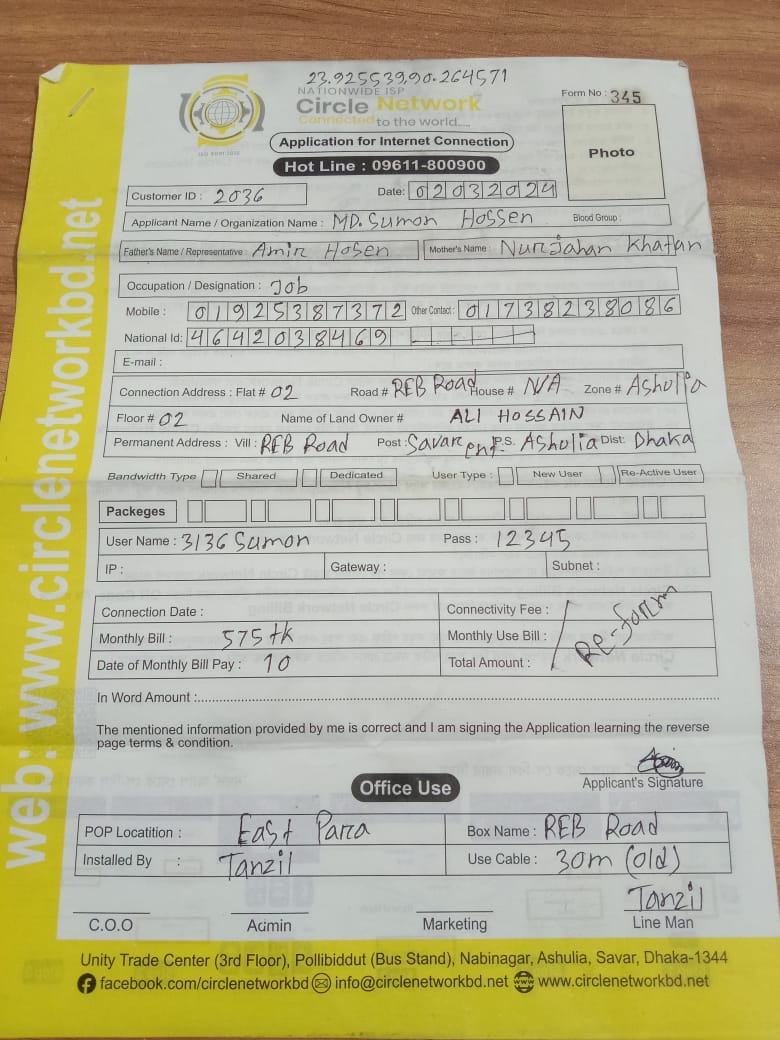 23.925539,90.264571
NATIONWIDE ISP
Circle Network
Connected to the world....
ISO 9001:2015
Form No : 345
Application for Internet Connection
Photo
Hot Line : 09611-800900
Customer ID : 2036 Date: 02032024
Applicant Name / Organization Name : MD. Sumon Hossen Blood Group :
Father's Name / Representative : Amir Hosen Mother's Name : Nurjahan Khatan
Occupation / Designation : Job
Mobile : 01925387372 Other Contact : 01738238086
National Id: 4642038469
E-mail :
Connection Address : Flat # 02 Road # REB Road House # N/A Zone # Ashulia
Floor # 02 Name of Land Owner # ALI HOSSAIN
Permanent Address : Vill : REB Road Post : Savar ent. P.S. Ashulia Dist: Dhaka
Bandwidth Type Shared Dedicated User Type : New User Re-Active User
Packeges
User Name : 3136 Sumon Pass : 12345
IP : Gateway : Subnet :
Connection Date : Connectivity Fee :
Monthly Bill : 575 tk Monthly Use Bill : Re-form
Date of Monthly Bill Pay : 10 Total Amount :
In Word Amount :
The mentioned information provided by me is correct and I am signing the Application learning the reverse
page terms & condition.
Applicant's Signature
Office Use
POP Locatition : East Para Box Name : REB Road
Installed By : Tanzil Use Cable : 30m (old)
Tanzil
C.O.O Admin Marketing Line Man
Unity Trade Center (3rd Floor), Pollibiddut (Bus Stand), Nabinagar, Ashulia, Savar, Dhaka-1344
facebook.com/circlenetworkbd info@circlenetworkbd.net www.circlenetworkbd.net
web: www.circlenetworkbd.net